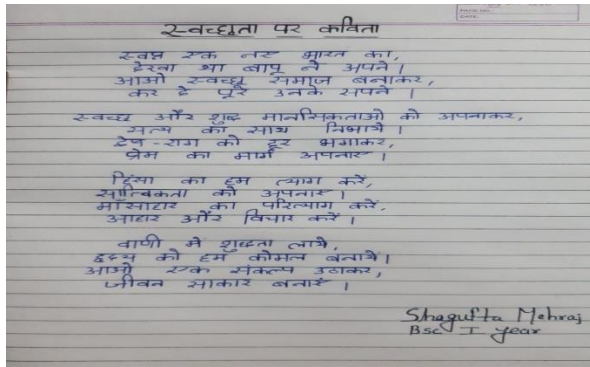 PAGE NO.
DATE
स्वच्छता पर कविता
स्वप्न एक नए भारत का,
देखा था बापू ने अपने।
आओ स्वच्छ समाज बनाकर,
कर दे पूरे उनके सपने।
स्वच्छ और शुद्ध मानसिकताओ को अपनाकर,
सत्य का साथ निभाये।
द्वेष-राग को दूर भगाकर,
प्रेम का मार्ग अपनाए।
हिंसा का हम त्याग करें,
सात्विकता को अपनाए।
माँसाहार का परित्याग करें,
आहार और विचार करें।
वाणी मे शुद्धता लाये,
हृदय को हम कोमल बनाये।
आओ एक संकल्प उठाकर,
जीवन साकार बनाए।
Shagufta Mehraj
BSc I year